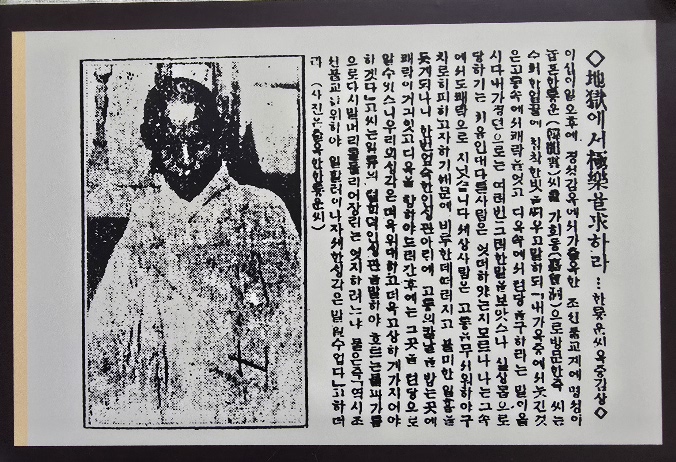 ◇地獄에서極樂을求하라…한룡운씨옥중감상◇
이십일일오후에 경성감옥에서가출옥한 조선불교계에명성이
놉흔한룡운(韓龍雲)씨를 가회동(嘉會洞)으로방문한즉 씨는
수척한얼골에 침착한빗을띄우고말하되 「내가옥중에서늣긴것
은고통속에서쾌락을엇고 디옥속에서텬당을구하라는 말이올
시다내가경뎐으로는 여러번그러한말을보앗스나 실상몸으로
당하기는 처음인대다른사람은 엇더하얏는지모르나 나는그속
에서도쾌락으로 지냇슴니다세상사람은 고통을무서워하야구
차로히피하고자하기때문에 비루한데떠러지고 불미한일홈을
듯게되나니 한번엄숙한인생관아래에 고통의칼날을밟는곳에
쾌락이거긔잇고디옥을 향하야드러간후에는 그곳을 텬당으로
알수잇스니우리의생각은더욱위대하고더욱고상하게가지어야
하겟다」고씨는일류의 텰학뎍인생관을말하야 흐르는듯
으로다시말머리를돌리어장래는 엇지하려느냐 물은즉「역시조
선불교를위하야 일할터이나자세한생각은말할수업다」고하더
라 (사진은출옥한한룡운씨)